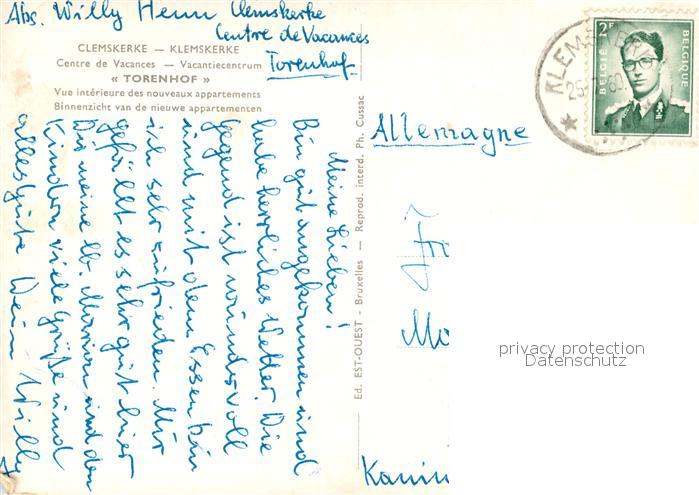 Abs. Willy Henn Clemskerke
Centre de Vacances
Torenhof
CLEMSKERKE — KLEMSKERKE
Centre de Vacances — Vacantiecentrum
« TORENHOF »
Vue intérieure des nouveaux appartements
Binnenzicht van de nieuwe appartementen
Meine Lieben!
Bin gut angekommen und
habe herrliches Wetter. Die
Gegend ist wundervoll
und mit dem Essen bin
ich sehr zufrieden. Mir
gefällt es sehr gut hier
Dir meine lb. und den
Kindern viele Grüße und
alles Gute Dein Willy
Ed. EST-OUEST - Bruxelles — Reprod. interd. Ph. Cussac
2F
BELGIË
BELGIQUE
Allemagne
privacy protection
Datenschutz